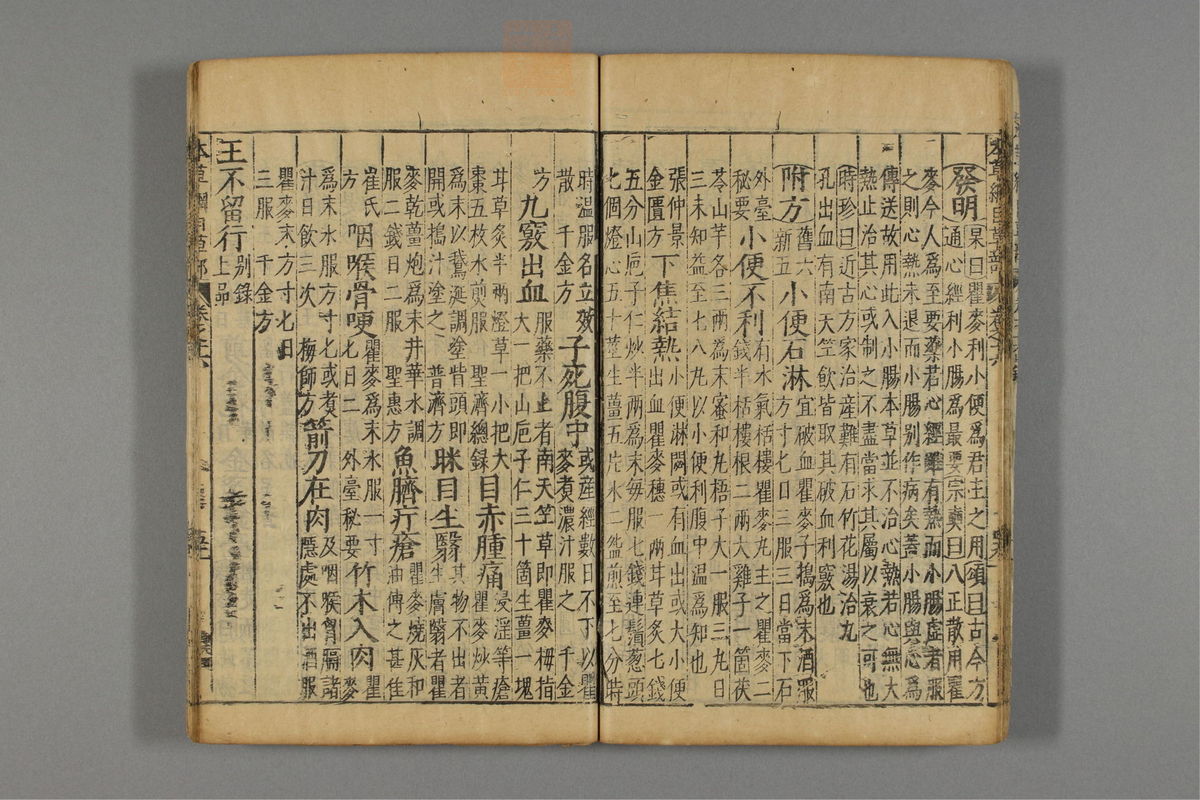 發明杲曰瞿麥利小便為君主之用頌曰古今方
通心經利小腸為最要宗奭曰八正散用瞿
麥今人為至要藥若心經雖有熱而小腸虛者服
之則心熱未退而小腸別作病矣蓋小腸與心為
傳送故用此入小腸本草並不治心熱若心無大
熱止治其心或制之不盡當求其屬以衰之可也
時珍曰近古方家治產難有石竹花湯治九
孔出血有南天竺飲皆取其破血利竅也
附方舊六新五小便石淋宜破血瞿麥子搗為末酒服
方寸匕日三服三日當下石
外臺秘要小便不利有水氣栝樓瞿麥丸主之瞿麥二
錢半栝樓根二兩大雞子一箇茯
苓山芋各三兩為末蜜和丸梧子大一服三丸日
三未知益至七八丸以小便利腹中溫為知也
張仲景金匱方下焦結熱小便淋閟或有血出或大小便
出血瞿麥穗一兩甘草炙七錢
五分山巵子仁炒半兩為末每服七錢連鬚葱頭
七個燈心五十莖生薑五片水二盌煎至七分時
時溫服名立效散千金方子死腹中或產經數日不下以瞿
麥煑濃汁服之千金
方九竅出血服藥不止者南天竺草即瞿麥拇指
大一把山巵子仁三十箇生薑一塊
甘草炙半兩燈草一小把大
棗五枚水煎服聖濟總錄目赤腫痛浸淫等瘡
瞿麥炒黃
為末以鵝涎調塗眥頭即
開或搗汁塗之普濟方眯目生翳其物不出者
生膚翳者瞿
麥乾薑炮為末井華水調
服二錢日二服聖惠方魚臍疔瘡瞿麥燒灰和
油傅之甚佳
崔氏方咽喉骨哽瞿麥為末水服一寸
匕日二外臺秘要竹木入肉瞿麥
為末水服方寸匕或煮
汁日飲三次梅師方箭刀在肉及咽喉胷膈諸
隱處不出酒服
瞿麥末方寸匕日
三服千金方
王不留行別錄上品
本草綱目草部